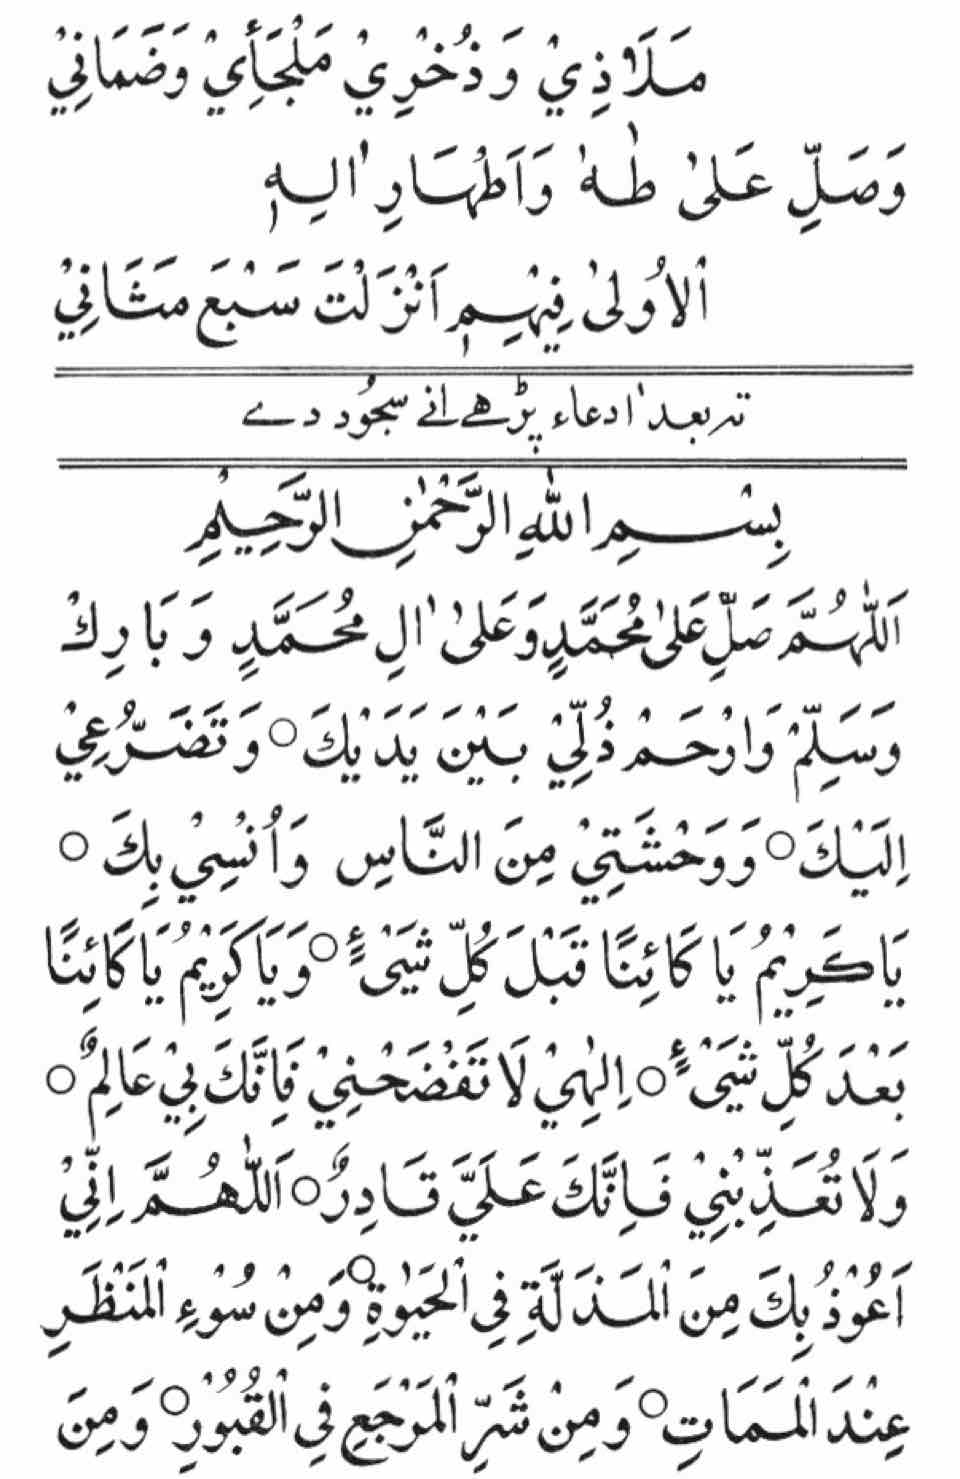 مَلَاذِيْ وَ ذُخْرِيْ مَلْجَأِيْ وَضَمَانِيْ
وَصَلِّ عَلىٰ طٰهٰ وَاَطْهَارِ اٰلِهٖ
الْاُولىٰ فِيْهِمٖ اَنْزَلْتَ سَبْعَ مَثَانِيْ
تہ بعد اٰ دعاء پڑھے انے سجُود دے
بِسْمِ اللهِ الرَّحْمٰنِ الرَّحِيْمِ
اَللّٰهُمَّ صَلِّ عَلىٰ مُحَمَّدٍ وَعَلىٰ اٰلِ مُحَمَّدٍ وَ بَارِكْ
وَسَلِّمْ وَارْحَمْ ذُلِّيْ بَيْنَ يَدَيْكَ ○ وَتَضَرُّعِيْ
اِلَيْكَ ○ وَوَحْشَتِيْ مِنَ النَّاسِ وَاُنْسِيْ بِكَ ○
يَاكَرِيْمُ يَا كَائِنًا قَبْلَ كُلِّ شَيْءٍ ○ وَيَاكَرِيْمُ يَاكَائِنًا
بَعْدَ كُلِّ شَيْءٍ ○ اِلٰهِيْ لَا تَفْضَحْنِيْ فَاِنَّكَ بِيْ عَالِمٌ ○
وَلَا تُعَذِّبْنِيْ فَاِنَّكَ عَلَيَّ قَادِرٌ ○ اَللّٰهُمَّ اِنِّيْ
اَعُوْذُ بِكَ مِنَ الْمَذَلَّةِ فِي الْحَيٰوةِ ○ وَمِنْ سُوْءِ الْمَنْظَرِ
عِنْدَ الْمَمَاتِ ○ وَمِنْ شَرِّ الْمَرْجَعِ فِي الْقُبُوْرِ ○ وَمِنَ